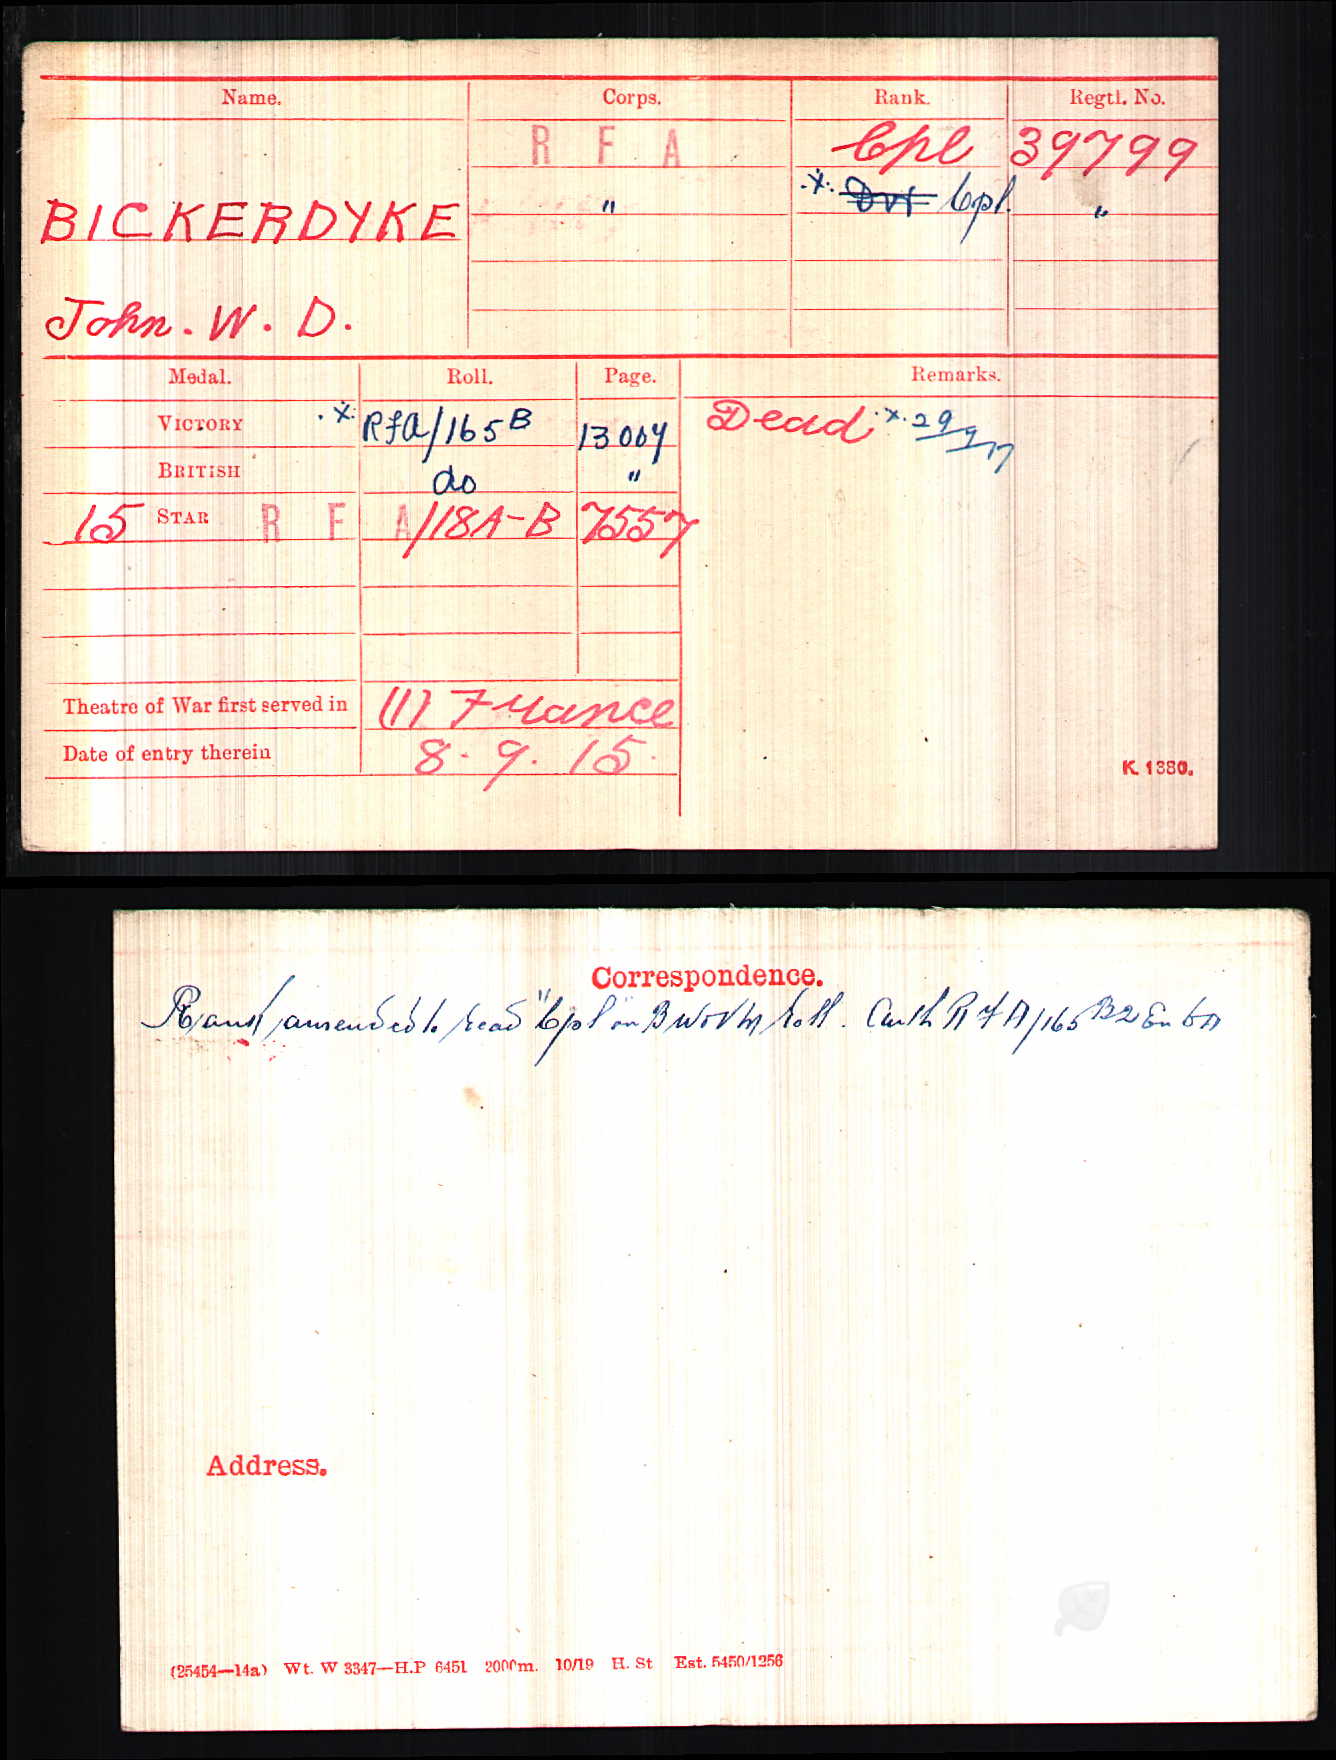 Name. Corps. Rank. Regtl. No.
R F A Cpl 39799
BICKERDYKE " .x. Dvr Cpl. "
John. W. D.
Medal. Roll. Page. Remarks.
VICTORY .x. RFA/165B 13004 Dead .x. 29/9/17
BRITISH do "
15 STAR R F A/18A-B 7557
Theatre of War first served in (1) France
Date of entry therein 8. 9. 15.
K. 1380.
Correspondence.
Rank amended to read "Cpl" on B W & V M Roll. Auth R F A/165 B2
Address.
(25454—14a) Wt. W 3347—H.P 6451 2000m. 10/19 H. St Est. 5450/1256